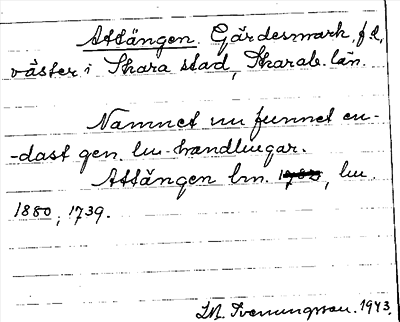 Attängen. Gärdesmark, f.d,
väster i Skara stad, Skarab. län.
Namnet nu funnet en-
-dast gen. lm-handlingar.
Attängen lm. , lm.
1880, 1739.
1943.